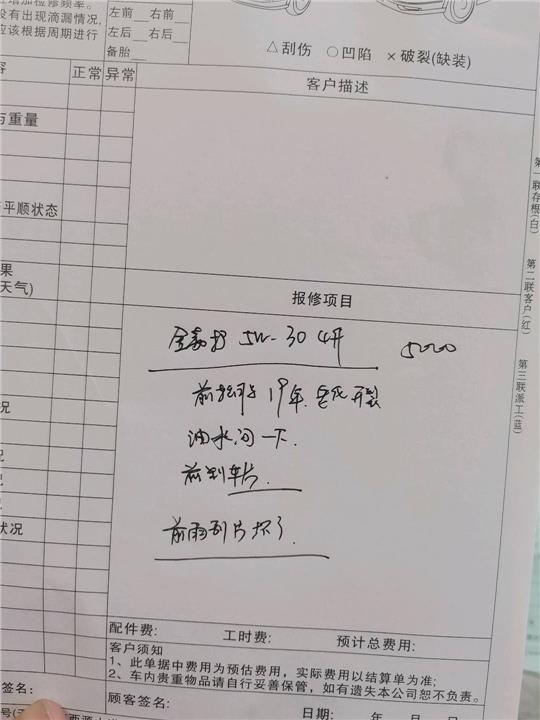 增加检修频率。
没有出现滴漏情况,
应该根据周期进行
左前__右前__
左后__右后__
备胎__
△刮伤 ○凹陷 ×破裂(缺装)
正常 异常
客户描述
与重量
平顺状态
果
天气)
况
状况
报修项目
5W-30 4升 5000
前轮胎 19年. 老化 开裂
油水问一下.
前刹车片.
前雨刮片坏了.
配件费: 工时费: 预计总费用:
客户须知
1、此单据中费用为预估费用，实际费用以结算单为准;
2、车内贵重物品请自行妥善保管，如有遗失本公司恕不负责。
签名: 顾客签名: 日期: 年 月
第一联存根(白)
第二联客户(红)
第三联派工(蓝)